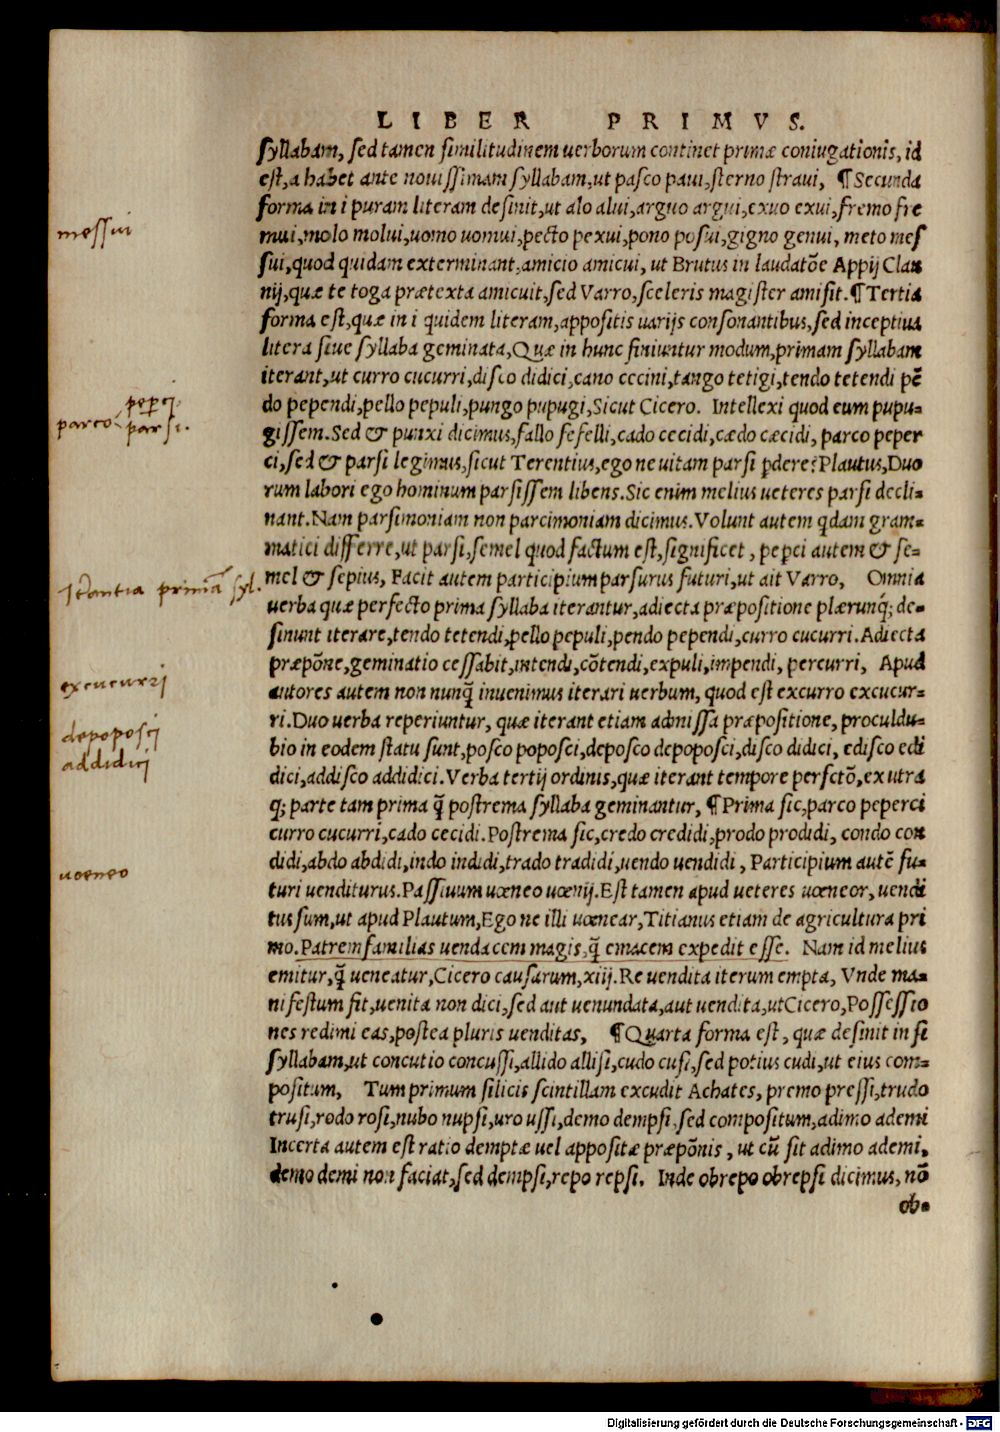 LIBER PRIMVS.
syllabam, sed tamen similitudinem uerborum continet primæ coniugationis, id
est, a habet ante nouissimam syllabam, ut pasco paui, sterno straui, ¶ Secunda
forma in i puram literam desinit, ut alo alui, arguo argui, exuo exui, fremo fre
mui, molo molui, uomo uomui, pecto pexui, pono posui, gigno genui, meto mes
sui, quod quidam exterminant, amicio amicui, ut Brutus in laudatõe Appij Clau
nij, quæ te toga prætexta amicuit, sed Varro, sceleris magister amisit. ¶ Tertia
forma est, quæ in i quidem literam, appositis uarijs consonantibus, sed inceptiua
litera siue syllaba geminata, Quæ in hunc finiuntur modum, primam syllabam
iterant, ut curro cucurri, disco didici, cano cecini, tango tetigi, tendo tetendi pẽ
do pependi, pello pepuli, pungo pupugi, Sicut Cicero. Intellexi quod eum pupu-
gissem. Sed & punxi dicimus, fallo fefelli, cado cecidi, cædo cæcidi, parco peper
ci, sed & parsi legimus, sicut Terentius, ego ne uitam parsi ꝑdere? Plautus, Duo
rum labori ego hominum parsissem libens. Sic enim melius ueteres parsi decli-
nant. Nam parsimoniam non parcimoniam dicimus. Volunt autem qdam gram-
matici differre, ut parsi, semel quod factum est, significet, peꝑci autem & se-
mel & sepius, Facit autem participium parsurus futuri, ut ait Varro, Omnia
uerba quæ perfecto prima syllaba iterantur, adiecta præpositione plærunq̃; de-
sinunt iterare, tendo tetendi, pello pepuli, pendo pependi, curro cucurri. Adiecta
præpõne, geminatio cessabit, intendi, cõtendi, expuli, impendi, percurri, Apud
autores autem non nunq̃ inuenimus iterari uerbum, quod est excurro excucur-
ri. Duo uerba reperiuntur, quæ iterant etiam admissa præpositione, proculdu-
bio in eodem statu sunt, posco poposci, deposco depoposci, disco didici, edisco edi
dici, addisco addidici. Verba tertij ordinis, quæ iterant tempore perfctõ, ex utra
q; parte tam prima q̃ postrema syllaba geminantur, ¶ Prima sic, parco peperci
curro cucurri, cado cecidi. Postrema sic, credo credidi, prodo prodidi, condo con
didi, abdo abdidi, indo indidi, trado tradidi, uendo uendidi, Participium autẽ fu-
turi uenditurus. Passiuum uœneo uœnij. Est tamen apud ueteres uœneor, uendi
tus sum, ut apud Plautum, Ego ne illi uœnear, Titianus etiam de agricultura pri
mo. Patremfamilias uendacem magis, q̃ emacem expedit esse. Nam id melius
emitur, q̃ ueneatur, Cicero causarum, xiij. Re uendita iterum empta, Vnde ma-
nifestum fit, uenita non dici, sed aut uenundata, aut uendita, ut Cicero, Possessio
nes redimi eas, postea pluris uenditas, ¶ Quarta forma est, quæ desinit in si
syllabam, ut concutio concussi, allido allisi, cudo cusi, sed potius cudi, ut eius com-
positum, Tum primum silicis scintillam excudit Achates, premo pressi, trudo
trusi, rodo rosi, nubo nupsi, uro ussi, demo dempsi, sed compositum, adimo ademi
Incerta autem est ratio demptæ uel appositæ præpõnis, ut cũ sit adimo ademi,
demo demi non faciat, sed dempsi, repo repsi. Inde obrepo obrepsi dicimus, nõ
ob-
messui
peꝑci.
parco parsi.
Iterantia primã syl.
excucurri
depoposci
addidici
uoeneo
Digitalisierung gefördert durch die Deutsche Forschungsgemeinschaft - DFG